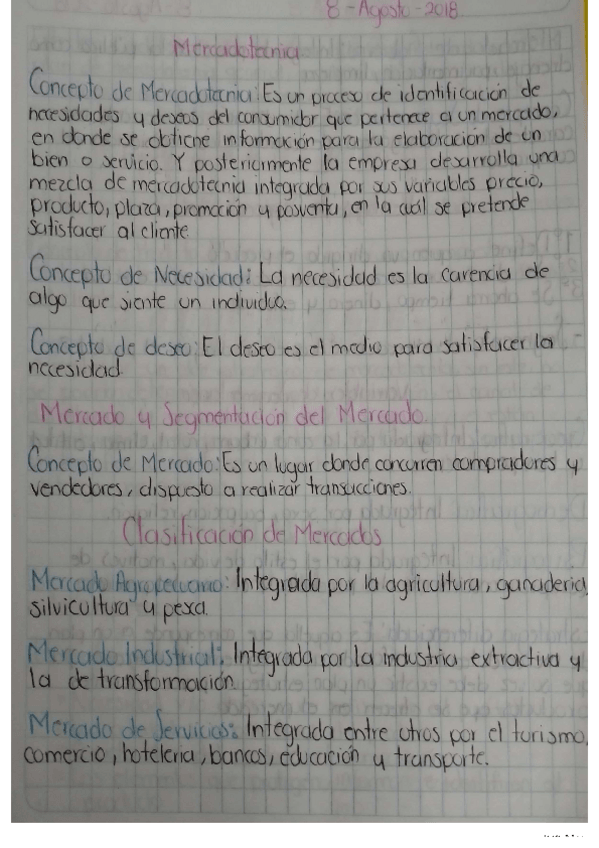 8-Agosto-2018
Mercadotecnia
Concepto de Mercadotecnia: Es un proceso de identificación de
necesidades y deseos del consumidor que pertenece a un mercado,
en donde se obtiene información para la elaboración de un
bien o servicio. Y posteriormente la empresa desarrolla una
mezcla de mercadotecnia integrada por sus variables precio,
producto, plaza, promoción y posventa, en la cuál se pretende
satisfacer al cliente
Concepto de Necesidad: La necesidad es la carencia de
algo que siente un individuo.
Concepto de deseo: El deseo es el medio para satisfacer la
necesidad.
Mercado y Segmentación del Mercado
Concepto de Mercado: Es un lugar donde concurren compradores y
vendedores, dispuesto a realizar transacciones.
Clasificación de Mercados
Mercado Agropecuario: Integrada por la agricultura, ganaderia,
silvicultura y pexa.
Mercado Industrial: Integrada por la industria extractiva y
la de transformación.
Mercado de Servicios: Integrada entre otros por el turismo,
comercio, hoteleria, bancos, educación y transporte.